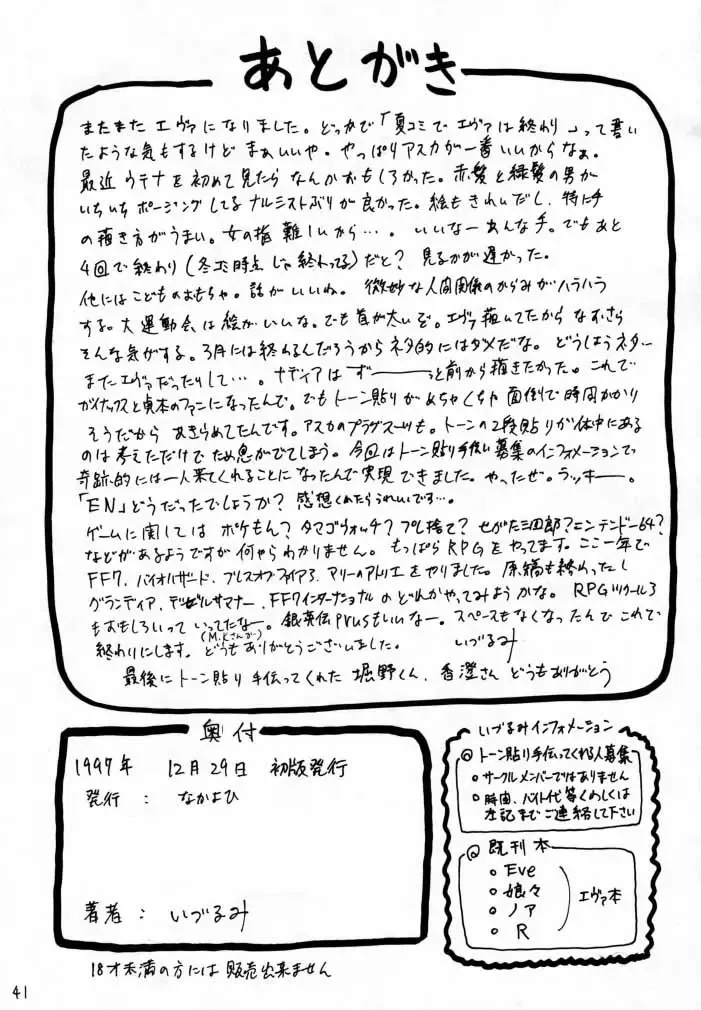 あとがき
またまたエヴァになりました。どっかで「夏コミでエヴァは終わり」って書い
たような気もするけどまぁいいや。やっぱりアスカが一番いいからなぁ。
最近ウテナを初めて見たらなんかおもしろかった。赤髪と緑髪の男が
いちいちポージングしてるナルシストぶりが良かった。絵もきれいだし、特に手
の描き方がうまい。女の指難しいから…。いいなーあんな手。でもあと
4回で終わり(冬コミ時点じゃ終わってる)だと?見るのが遅かった。
他にはこどものおもちゃ。話がいいね。微妙な人間関係のからみがハラハラ
する。大運動会は絵がいいな。でも首が太いぞ。エヴァ描いてたからなおさら
そんな気がする。3月には終わるんだろうからネタ的にはダメだな。どうしようネタ…
またエヴァだったりして…。ナディアはず――――っと前から描きたかった。これで
ガイナックスと貞本のファンになったんで。でもトーン貼りがめちゃくちゃ面倒で時間かかり
そうだからあきらめてたんです。アスカのプラグスーツも。トーンの2段貼りが体中にある
のは考えただけでため息がでてしまう。今回はトーン貼り手伝い募集のインフォメーションで
奇跡的には一人来てくれることになったんで実現できました。やったぜ。ラッキー。
「EN」どうだったでしょうか?感想くれたらうれしいです…。
ゲームに関してはポケもん?タマゴウォッチ?プレ捨て?せがた三四郎?ニンテンドー64?
などがあるようですが何やらわかりません。もっぱらRPGをやってます。ここ一年で
FF7、バイオハザード、ブレスオブファイア3、アリーのアトリエをやりました。原稿も終わったし
グランディア、デビルサマナー、FF7インターナショナルのどれかやってみようかな。RPGツクール3
もおもしろいって(M.Kさんが)いってたなー。銀英伝PLUSもいいなー。スペースもなくなったんでこれで
終わりにします。どうもありがとうございました。 いづるみ
最後にトーン貼り手伝ってくれた堀野くん、香澄さんどうもありがとう
奥付
1997年 12月29日 初版発行
発行 : なかよひ
著者 : いづるみ
18才未満の方には販売出来ません
いづるみインフォメーション
◎トーン貼り手伝ってくれる人募集
○サークルメンバーではありません
○時間、バイト代等くわしくは
左記までご連絡して下さい
◎既刊本
○Eve
○娘々
○ノア
○R
エヴァ本
41